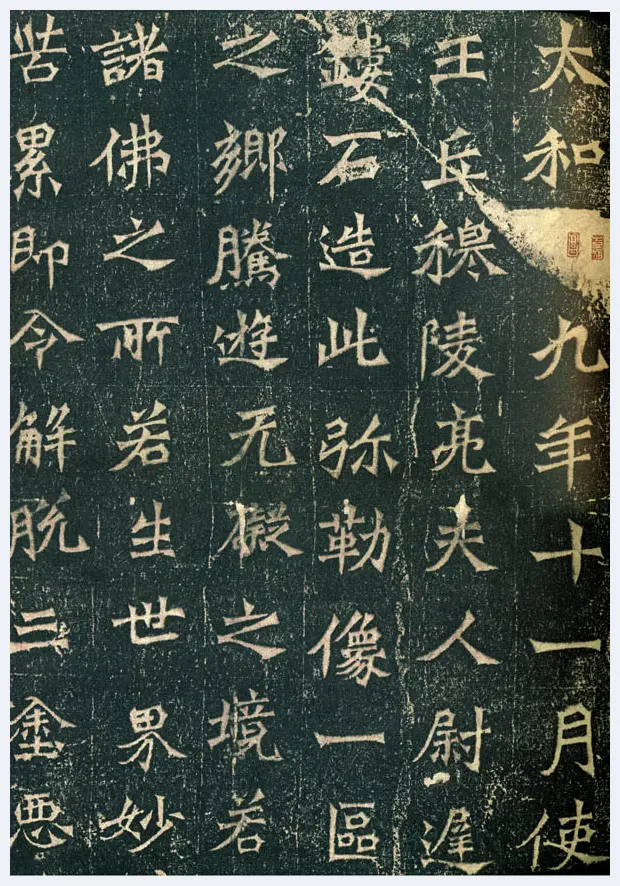 太和九年十一月使
王丘穆陵亮夫人尉遲
鏤石造此弥勒像一區
之鄉騰遊无礙之境若
諸佛之所若生世界妙
苦累即令解脫三塗悪